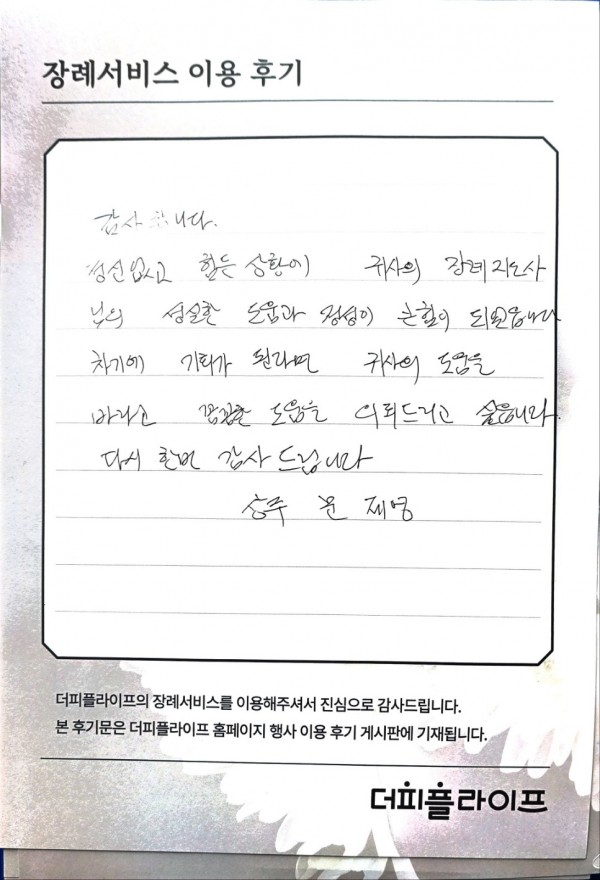 장례서비스 이용 후기
감사합니다.
정신없고 힘든 상황에 귀사의 장례지도사
님의 성실한 도움과 정성이 큰힘이 되었읍니다
차기에 기회가 된다면 귀사의 도움을
바라고 꼼꼼한 도움을 의뢰드리고 싶읍니다.
다시 한번 감사드립니다
상주 문 재영
더피플라이프의 장례서비스를 이용해주셔서 진심으로 감사드립니다.
본 후기문은 더피플라이프 홈페이지 행사 이용 후기 게시판에 기재됩니다.
더피플라이프